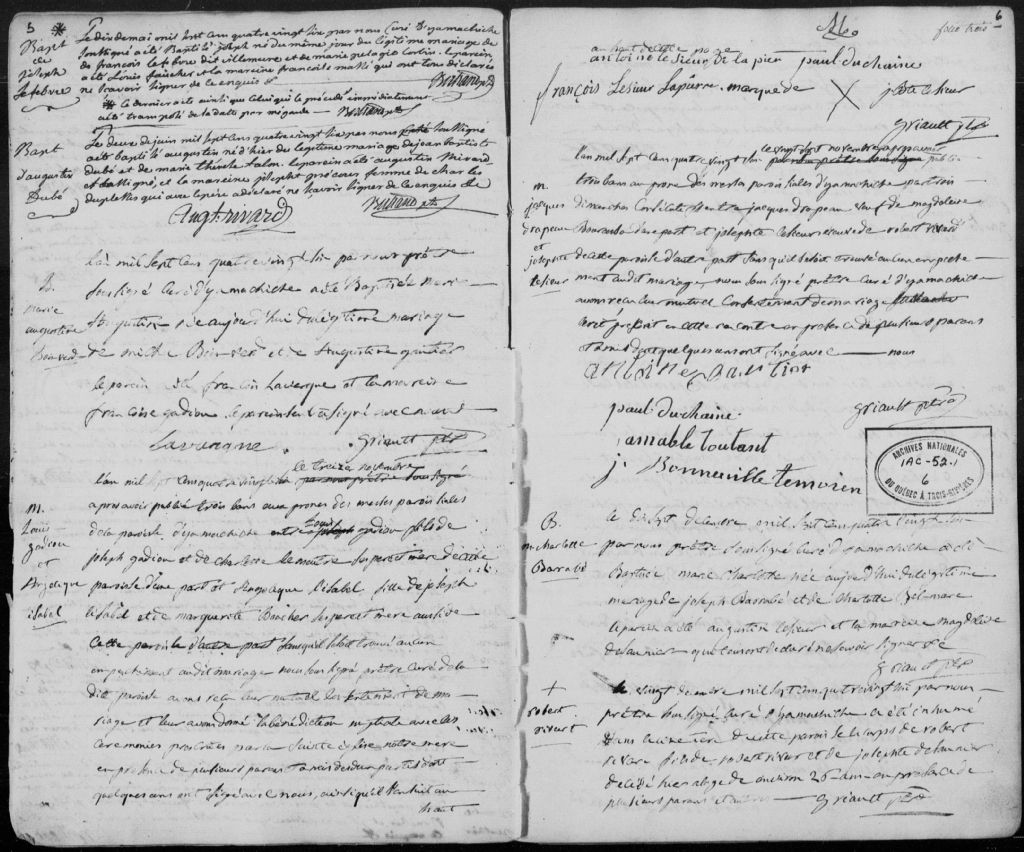 5 *
Bapt
de
joseph
Lefebvre
Le dix de mai mil sept cens quatre vingt six par nous Curé d'yamachiche
soussigné a été Baptisé joseph né du même jour du légitime mariage de
de françois lefebvre dit villemure et de marie pelagie Cortin. le parein
a été Louis faucher et la mareine françoise qui ont tous declaré
ne sçavoir signer de ce enquis &
* le dernier acte ainsi que celui qui le précéde immédiatement
ont été transposé de la date par mégarde
Bapt
d'augustin
Dubé
Le deux de juin mil sept cens quatre vingt six par nous soussigné
a été baptisé augustin né d'hier du legitime mariage de jean baptiste
dubé et de marie thérèse talon. le parein a été augustin Rivard
soussigné, et la mareine josepht précour femme de charles
duplessis qui avec le pere a declaré ne sçavoir signer de ce enquis &
Augst rivard
B.
marie
augustine
l'an mil sept cens quatre vingt six par nous prêtre
soussigné curé d'yamachiche a été Baptisée marie
augustine née aujourd'hui du légitime mariage
de et de augustine
le parein a été françois Lavergne et la mareine
francoise gadiou le parein a signé avec nous
Lavergne griault ptre
M.
Louis
gadiou
et
Angelique
isabel
le treize novembre
l'an mil sept cens quatre vingt six par nous prêtre soussigné
apres avoir publié trois bans aux prones des messes paroissiales
de la paroisse d'yamachiche entre Louis gadiou fils de
joseph gadiou et de charlotte le maitre ses pere et mere de cette
paroisse d'une part et Angelique lisabel fille de joseph
lisabel et de marguerite Boucher ses pere et mere aussi de
cette paroisse d'autre part sans qu'il se soit trouvé aucun
empechement audit mariage nous soussigné prêtre curé de la
dite paroisse avons reçu leur mutuel consentement de ma-
riage et leur avons donné la bénédiction nuptiale avec les
ceremonies prescrites par la sainte eglise notre mere
en presence de plusieurs parens et amis des deux parties dont
quelques uns ont signé avec nous, ainsi qu'il s'ensuit au
haut
6
folio trois
au haut de cette page
antoine lesieur De la pier paul duchaine
françois Lesieur Lapierre. marque de X
griault ptre
M.
jacques
drapeau
et
josephte
lesieur
le vingt sept novembre apres avoir
l'an mil sept cens quatre vingt six par nous prêtre soussigné publié
trois bans au prone des messes paroissiales d'yamachiche par trois
dimanches consécutifs entre jacques drapeau veuf de magdeleine
d'une part et josephte lesieur veuve de robert rivard
de cette paroisse d'autre part sans qu'il se soit trouvé aucun empeche-
ment audit mariage, nous soussigné prêtre curé d'yamachiche
avons reçu leur mutuel consentement de mariage
prescrit en cette rencontre en presence de plusieurs parens
et amis dont quelques uns ont signé avec nous
paul duchaine. griault ptre
amable toutant
j. Bonneuille temoien
ARCHIVES NATIONALES
1AC-52.1
6
DU QUÉBEC À TROIS-RIVIÈRES
B.
m charlotte
Barabé
le dix sept decembre mil sept cens quatre vingt six
par nous prêtre soussigné curé d'yamachiche a été
Baptisée marie charlotte née aujourd'hui du légitime
mariage de joseph Barrabé et de charlotte Bel-mare
le parein a été augustin lesieur et la mareine magdeleine
desaunier qui tous ont declaré ne savoir signer de ce
griault ptre
+
robert
rivart
le vingt decembre mil sept cens quatre vingt six par nous
prêtre soussigné curé d'yamachiche a été inhumé
dans le cimetiere de cette paroisse le corps de robert
rivard fils de robert rivar et de josephte desaunier
decedé hier agé de environ 26 ans en presence de
plusieurs parens et autres griault ptre